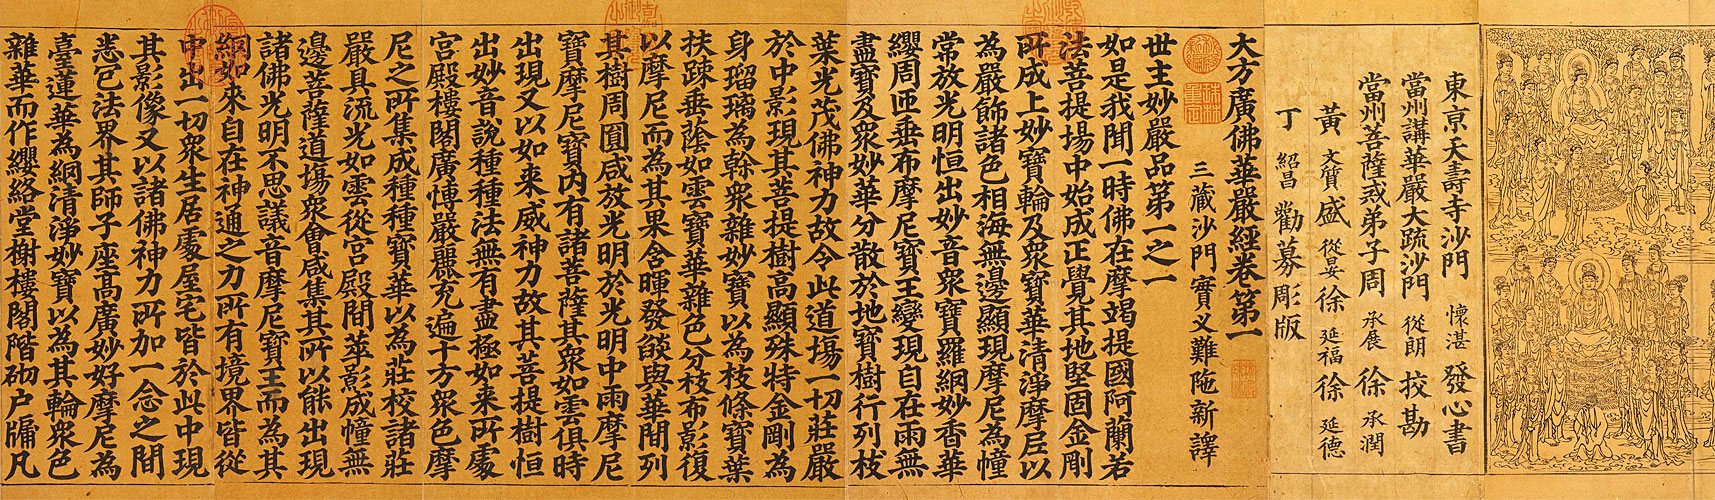 東京天壽寺沙門 懷湛 發心書
當州講華嚴大疏沙門 從朗 挍勘
當州菩薩戒弟子周 承展 徐 承潤
黃 文質 盛 從晏 徐 延福 徐 延德
丁 紹昌 勸募彫版
大方廣佛華嚴經卷第一
三藏沙門實叉難陁新譯
世主妙嚴品第一之一
如是我聞一時佛在摩竭提國阿蘭若
法菩提場中始成正覺其地堅固金剛
所成上妙寶輪及眾寶華清淨摩尼以
為嚴飾諸色相海無邊顯現摩尼為幢
常放光明恒出妙音眾寶羅網妙香華
纓周匝垂布摩尼寶王變現自在雨無
盡寶及眾妙華分散於地寶樹行列枝
葉光茂佛神力故令此道場一切莊嚴
於中影現其菩提樹高顯殊特金剛為
身瑠璃為幹眾雜妙寶以為枝條寶葉
扶疎垂蔭如雲寶華雜色分枝布影復
以摩尼而為其果含暉發焰與華間列
其樹周圓咸放光明於光明中雨摩尼
寶摩尼寶內有諸菩薩其眾如雲俱時
出現又以如來威神力故其菩提樹恒
出妙音說種種法無有盡極如來所處
宮殿樓閣廣博嚴麗充遍十方眾色摩
尼之所集成種種寶華以為莊校諸莊
嚴具流光如雲從宮殿間萃影成幢無
邊菩薩道場眾會咸集其所以能出現
諸佛光明不思議音摩尼寶王而為其
網如來自在神通之力所有境界皆從
中出一切眾生居處屋宅皆於此中現
其影像又以諸佛神力所加一念之間
悉包法界其師子座高廣妙好摩尼為
臺蓮華為網清淨妙寶以為其輪眾色
雜華而作纓絡堂榭樓閣階砌戶牖凡